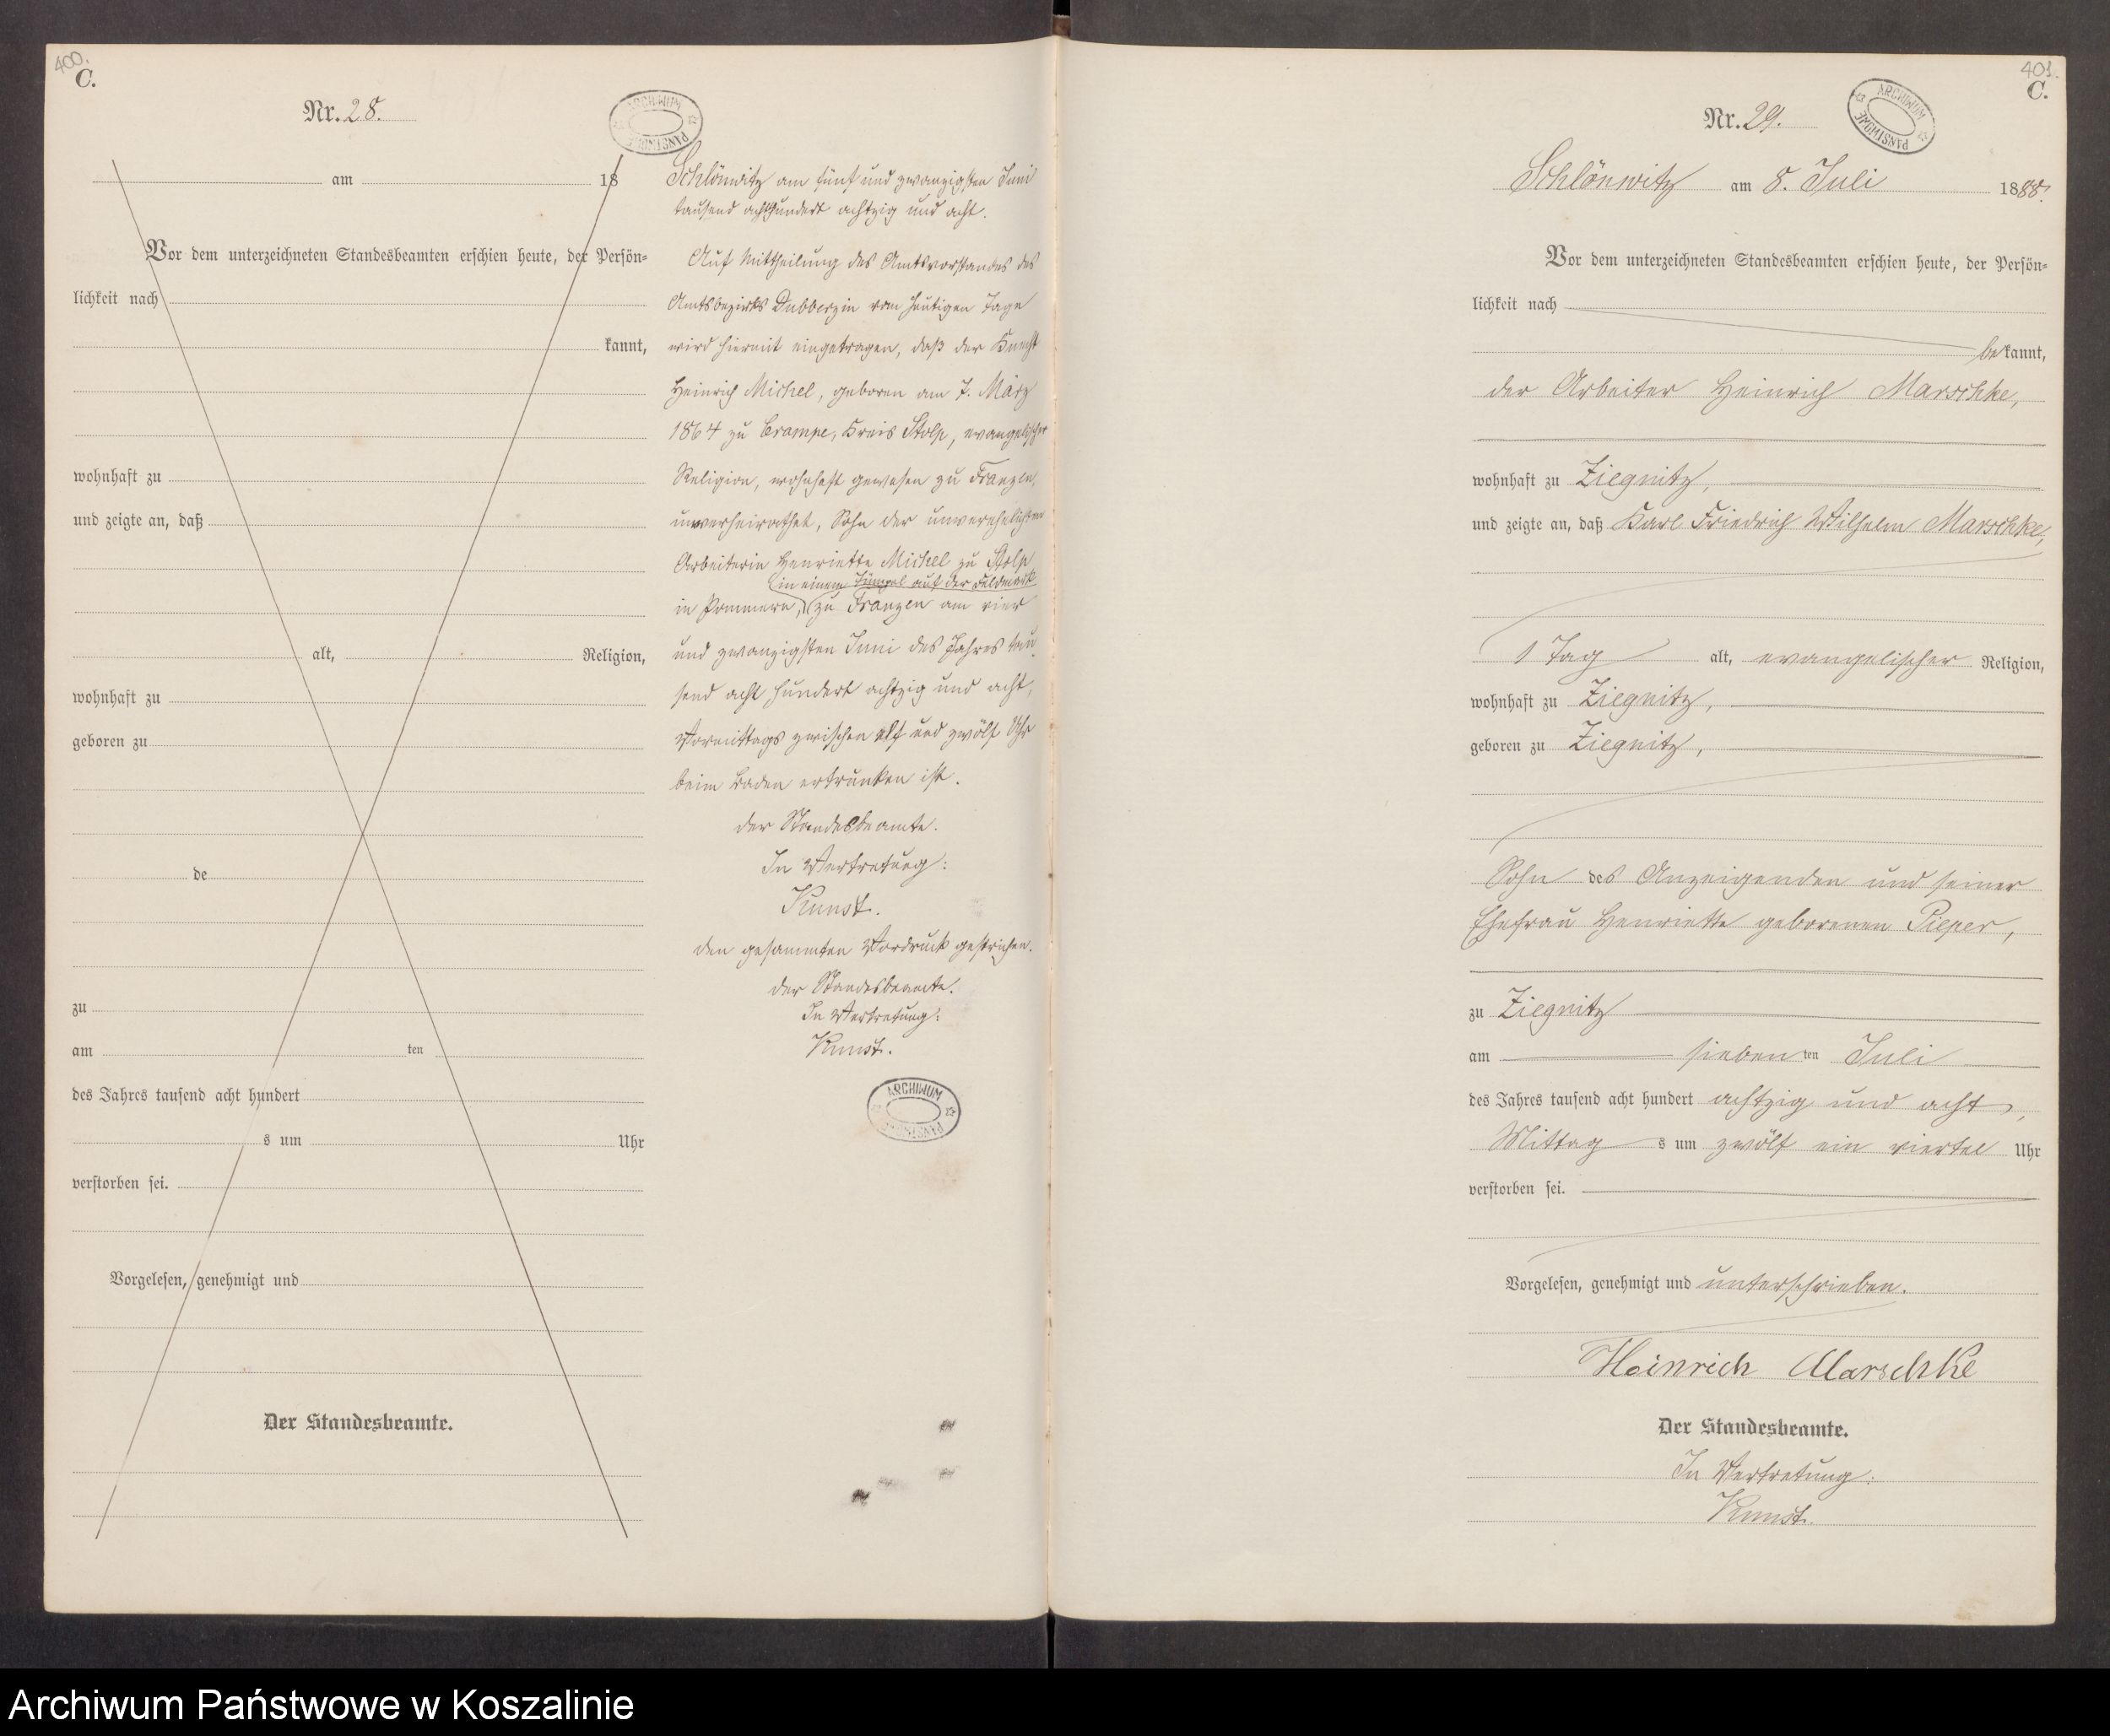 400.
C.
Nr. 28.
ARCHIWUM PAŃSTWOWE
am 18
Vor dem unterzeichneten Standesbeamten erschien heute, der Persön-
lichkeit nach
kannt,
wohnhaft zu
und zeigte an, daß
alt, Religion,
wohnhaft zu
geboren zu
de
zu
am ten
des Jahres tausend acht hundert
s um Uhr
verstorben sei.
Vorgelesen, genehmigt und
Der Standesbeamte.
Schlönwitz am fünf und zwanzigsten Juni
tausend achthundert achtzig und acht.
Auf Mittheilung des Amtsvorstandes des
Amtsbezirks Dubberzin vom heutigen Tage
wird hiermit eingetragen, daß der Knecht
Heinrich Michel, geboren am 7. März
1864 zu Crampe, Kreis Stolp, evangelischer
Religion, wohnhaft gewesen zu Franzen,
unverheirathet, Sohn der unverehelichten
Arbeiterin Henriette Michel zu Stolp
in einem Tümpel auf der Feldmark
in Pommern, zu Franzen am vier
und zwanzigsten Juni des Jahres tau
send acht hundert achtzig und acht,
Vormittags zwischen elf und zwölf Uhr
beim Baden ertrunken ist.
Der Standesbeamte.
In Vertretung:
Kunst.
Den gesammten Vordruck gestrichen.
Der Standesbeamte.
In Vertretung:
Kunst.
ARCHIWUM PAŃSTWOWE
401.
C.
Nr. 29.
ARCHIWUM PAŃSTWOWE
Schlönwitz am 8. Juli 1888.
Vor dem unterzeichneten Standesbeamten erschien heute, der Persön-
lichkeit nach
bekannt,
der Arbeiter Heinrich Marschke,
wohnhaft zu Ziegnitz,
und zeigte an, daß Karl Friedrich Wilhelm Marschke,
1 Tag alt, evangelischer Religion,
wohnhaft zu Ziegnitz,
geboren zu Ziegnitz,
Sohn des Anzeigenden und seiner
Ehefrau Henriette geborenen Pieper,
zu Ziegnitz
am siebenten Juli
des Jahres tausend acht hundert achtzig und acht,
Mittags um zwölf ein viertel Uhr
verstorben sei.
Vorgelesen, genehmigt und unterschrieben.
Heinrich Marschke
Der Standesbeamte.
In Vertretung:
Kunst.
Archiwum Państwowe w Koszalinie